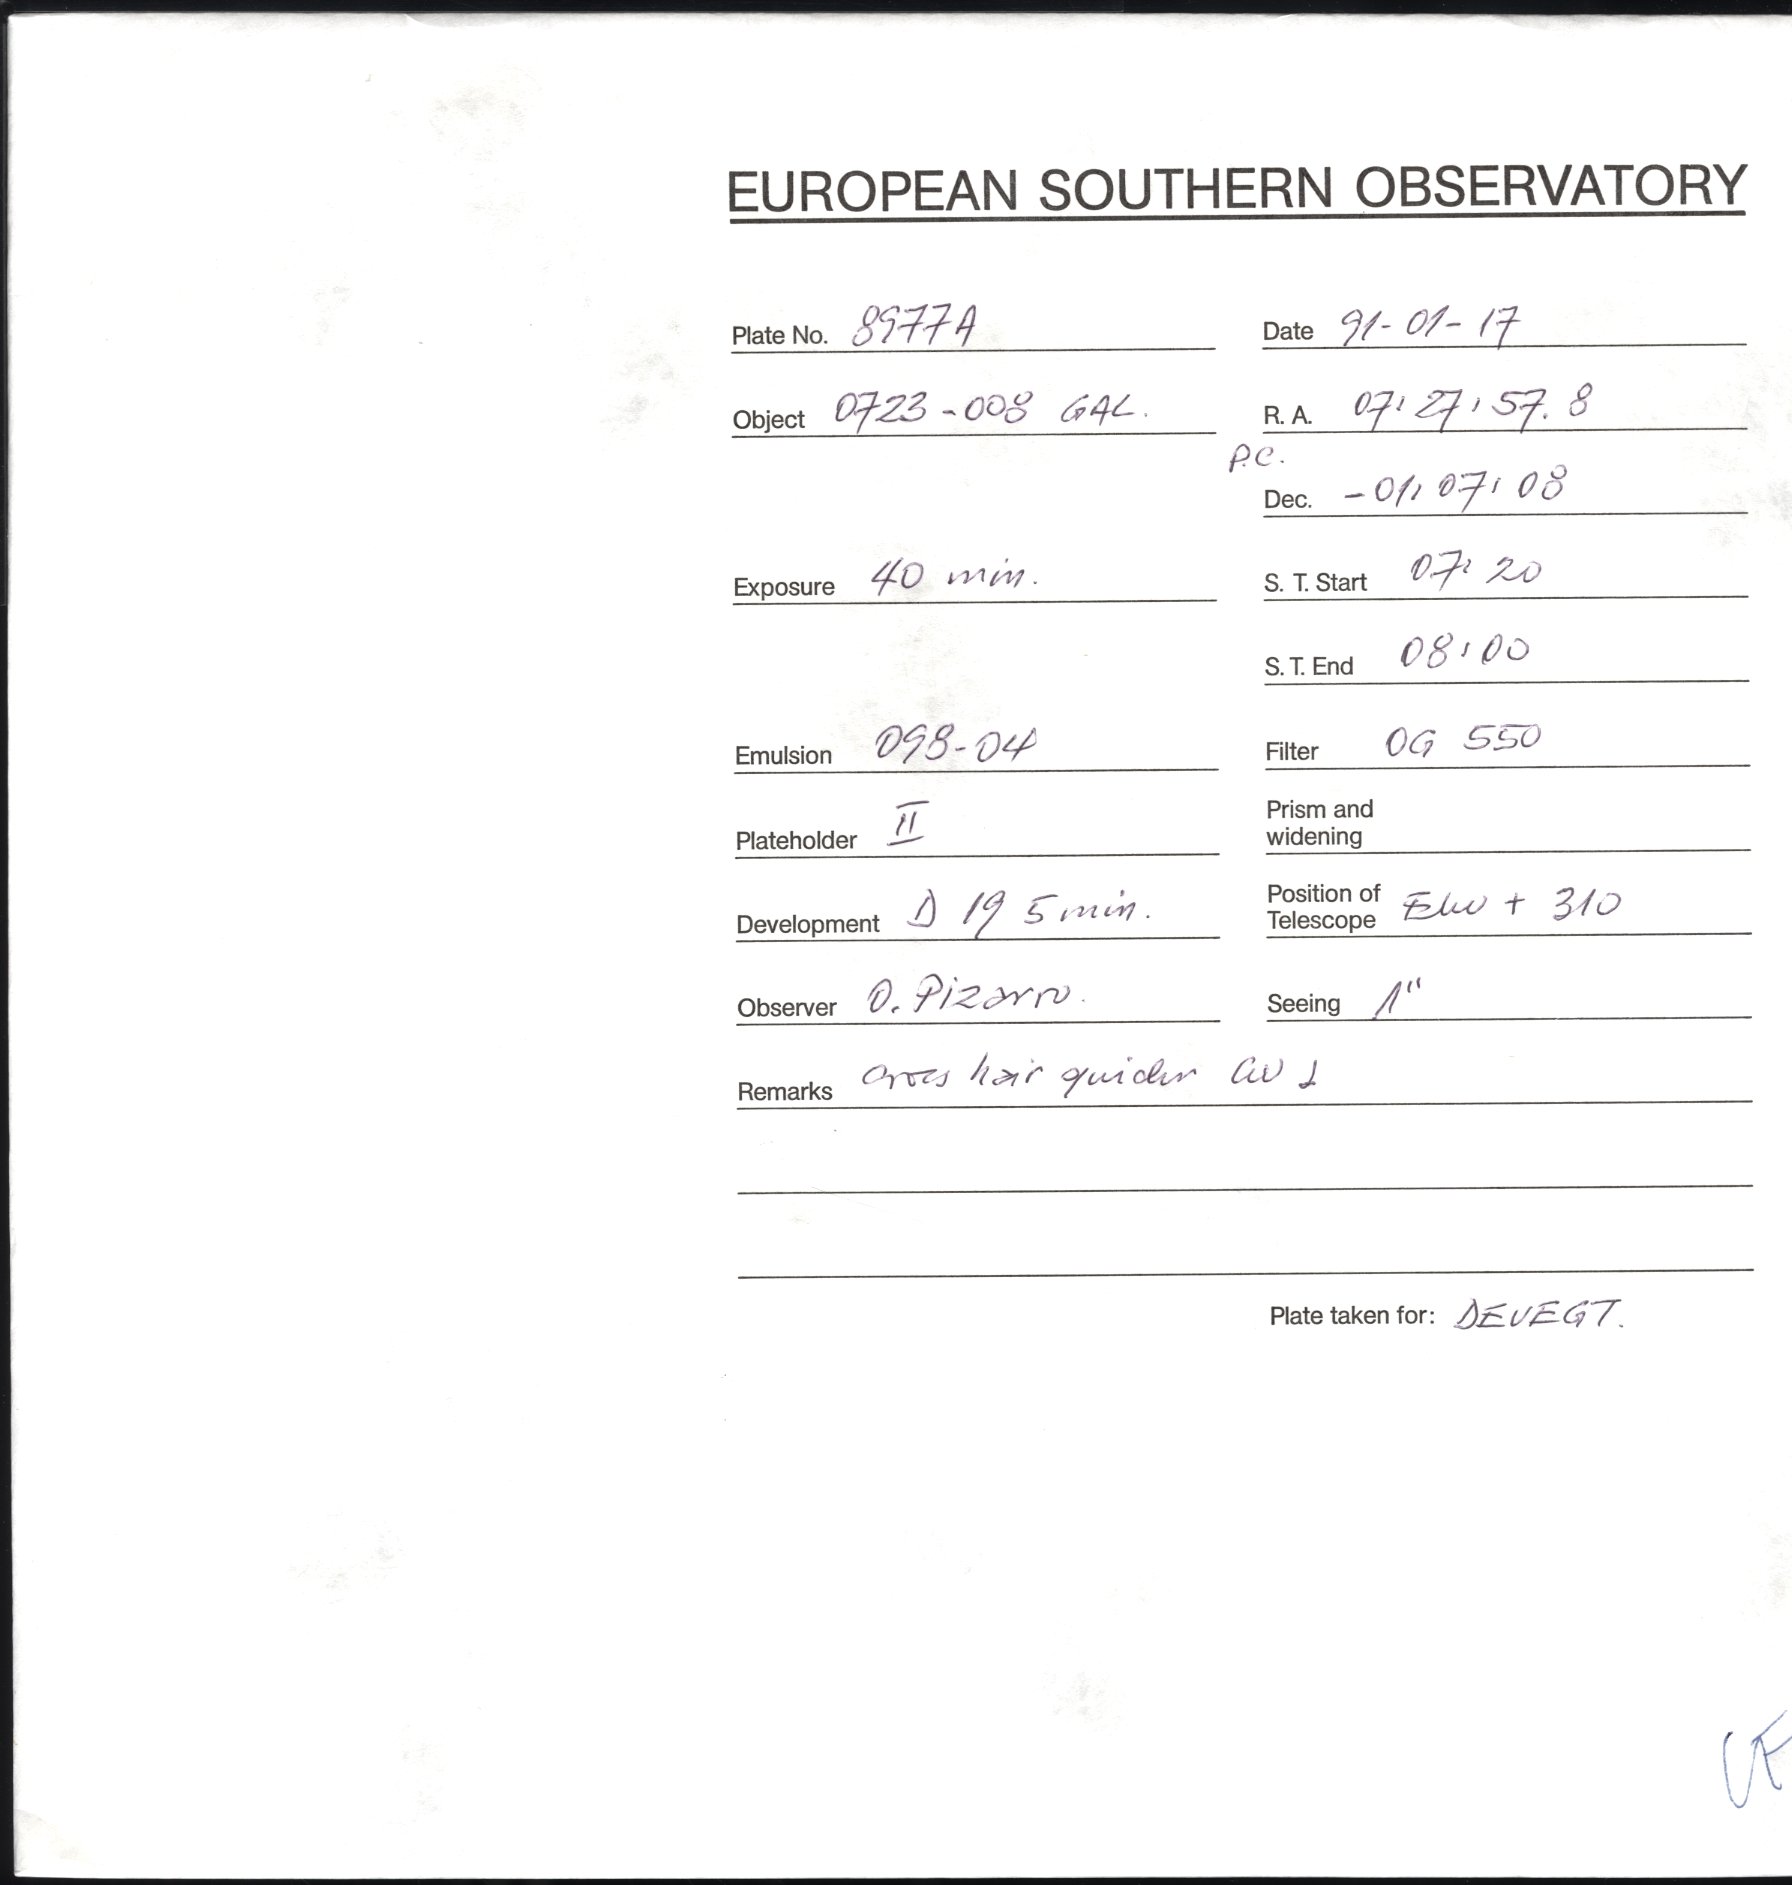 EUROPEAN SOUTHERN OBSERVATORY
Plate No. 8977A Date 91-01-17
Object 0723-008 GAL. R. A. 07:27:57.8
P.C.
Dec. -01:07:08
Exposure 40 min. S. T. Start 07:20
S. T. End 08:00
Emulsion 098-04 Filter OG 550
Plateholder II Prism and
widening
Development D 19 5 min. Position of
Telescope + 310
Observer O. Pizarro. Seeing 1"
Remarks cross hair guider
Plate taken for: DEVEGT.